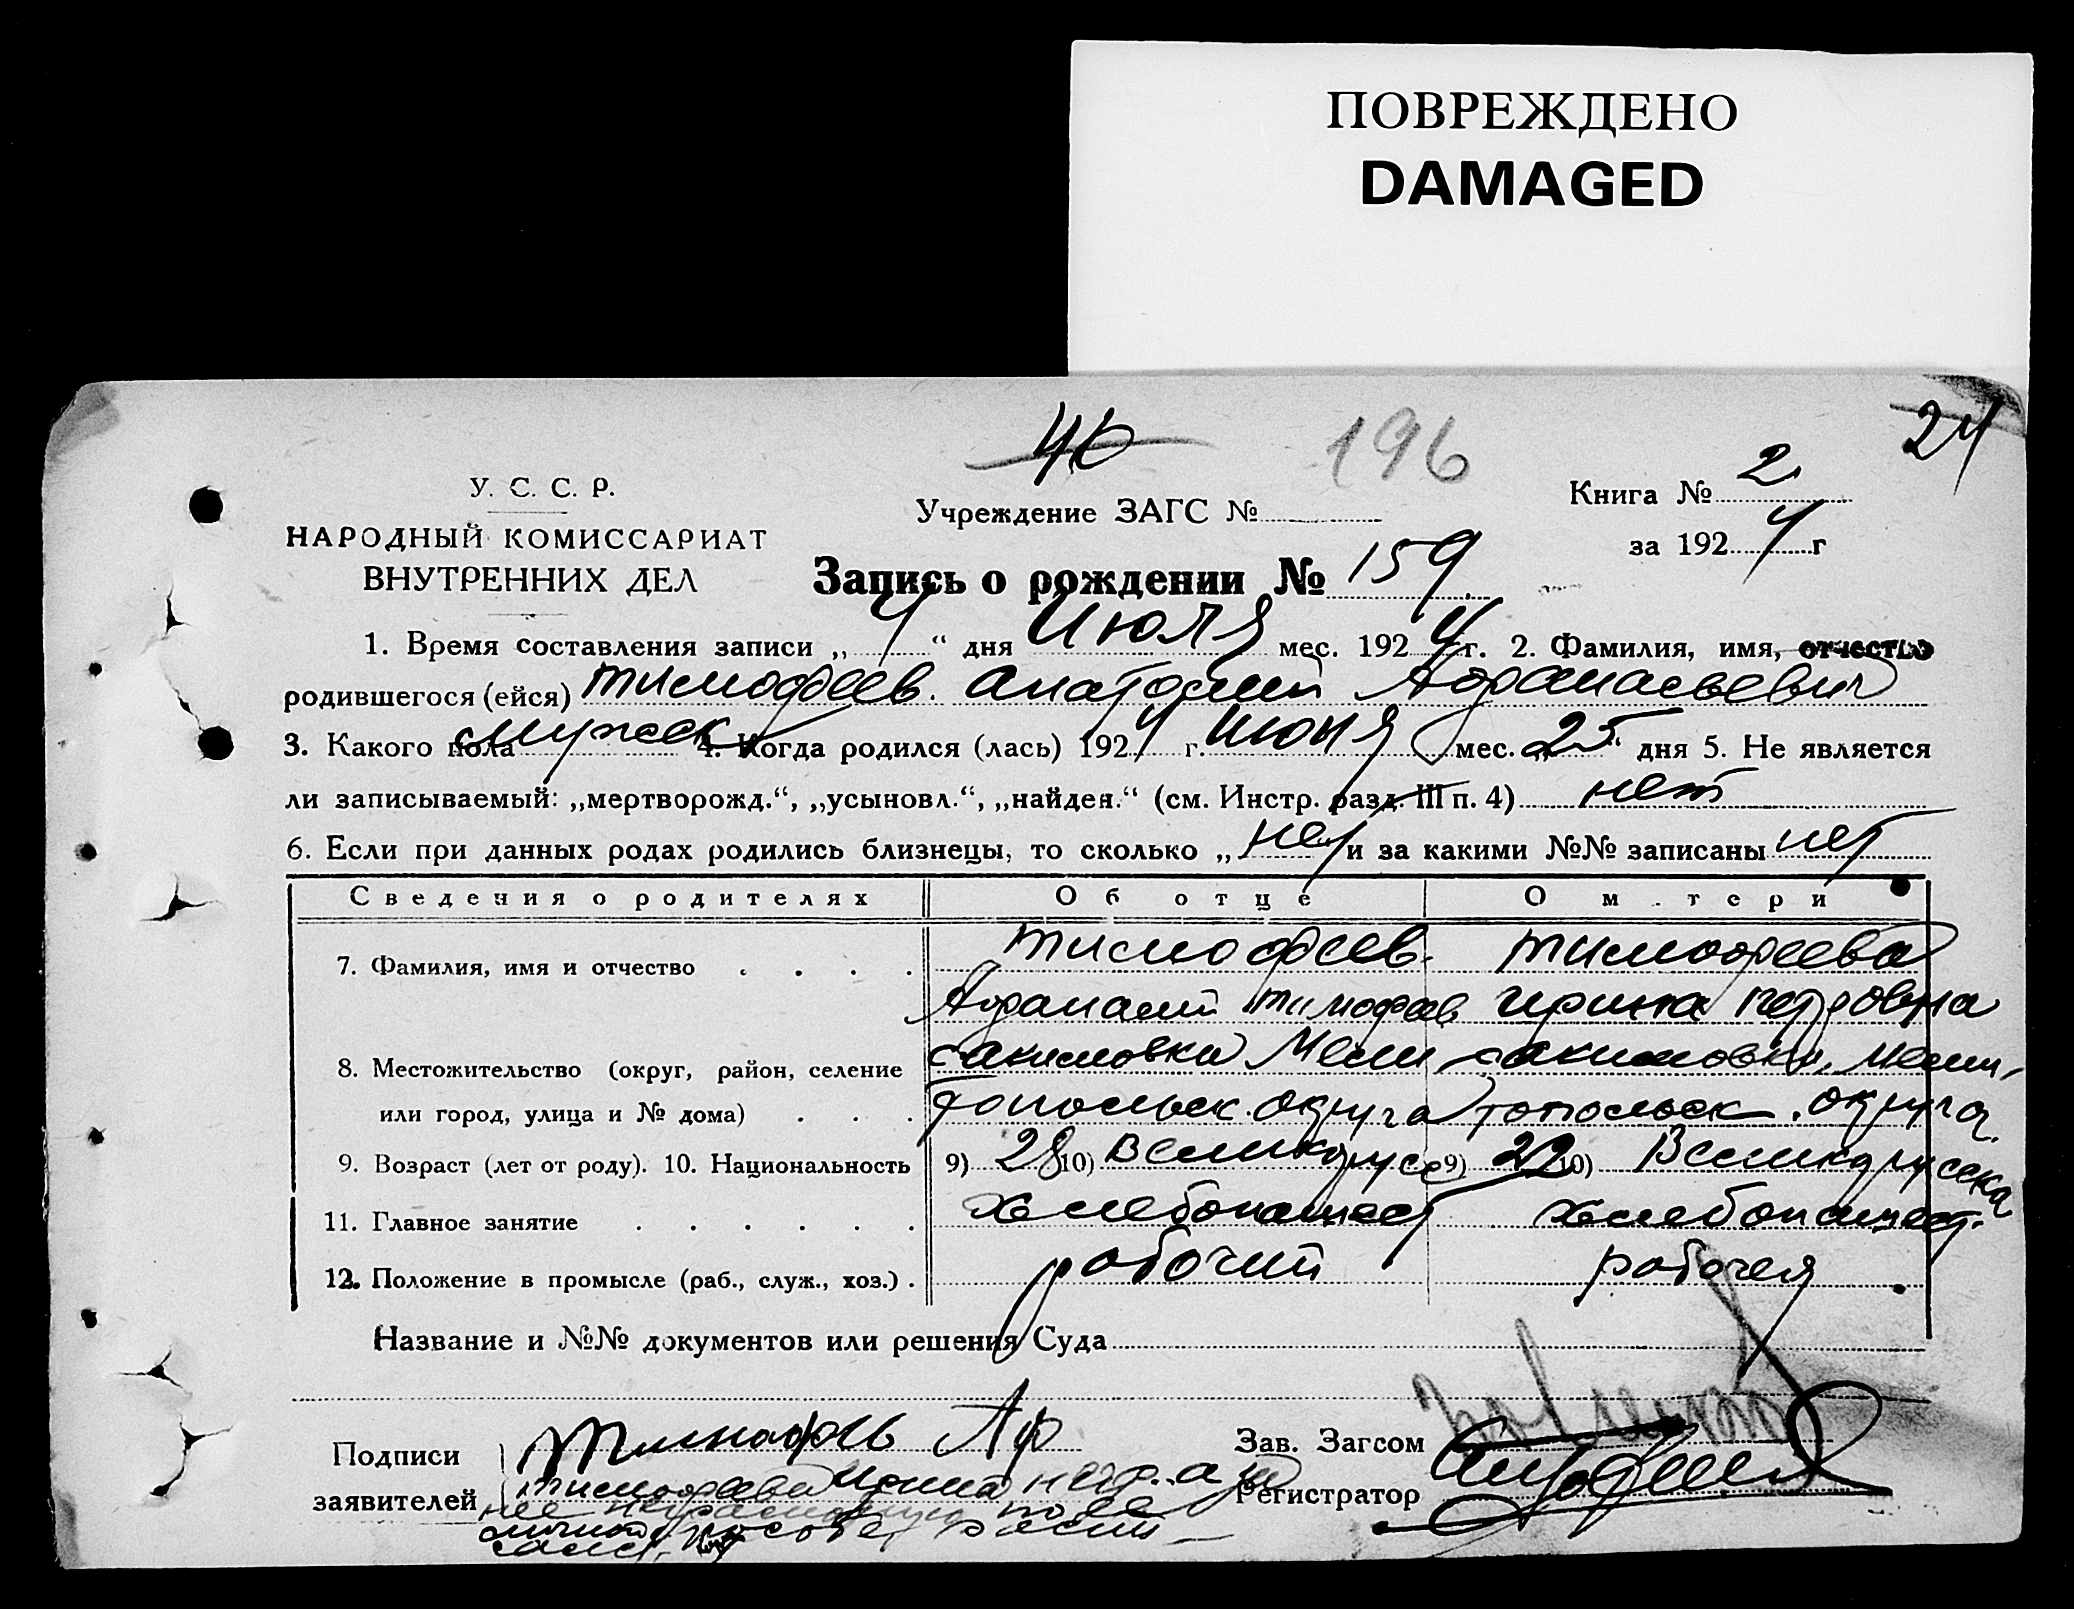 ПОВРЕЖДЕНО
DAMAGED
46 196 24
У. С. С. Р.
НАРОДНЫЙ КОМИССАРИАТ
ВНУТРЕННИХ ДЕЛ
Учреждение ЗАГС №
Книга № 2
за 1924 г
Запись о рождении № 159
1. Время составления записи „4“ дня Июля мес. 1924 г. 2. Фамилия, имя, отчество
родившегося (ейся) Тимофеев Анатолий Афанасьевич
3. Какого пола мужск 4. Когда родился (лась) 1924 г. июня мес. „25“ дня 5. Не является
ли записываемый: „мертворожд.“, „усыновл.“, „найден.“ (см. Инстр. разд. III п. 4) нет
6. Если при данных родах родились близнецы, то сколько „нет и за какими №№ записаны нет
Сведения о родителях Об отце О м.тери
7. Фамилия, имя и отчество Тимофеев Тимофеева
Афанасий Тимофеев Ирина Петровна
8. Местожительство (округ, район, селение Акимовка Мели Акимовка, Мели-
или город, улица и № дома) топольск. округа топольск. округа
9. Возраст (лет от роду). 10. Национальность 9) 28 10) Великорусс 9) 22 10) Великорусска
11. Главное занятие хлебопашест хлебопашест.
12. Положение в промысле (раб., служ., хоз.) рабочий рабочая
Название и №№ документов или решения Суда
Подписи
заявителей
Тимофеева Ирина негр. а за
нее неграмотную по ее
личной просьбе распис
Зав. Загсом
Регистратор